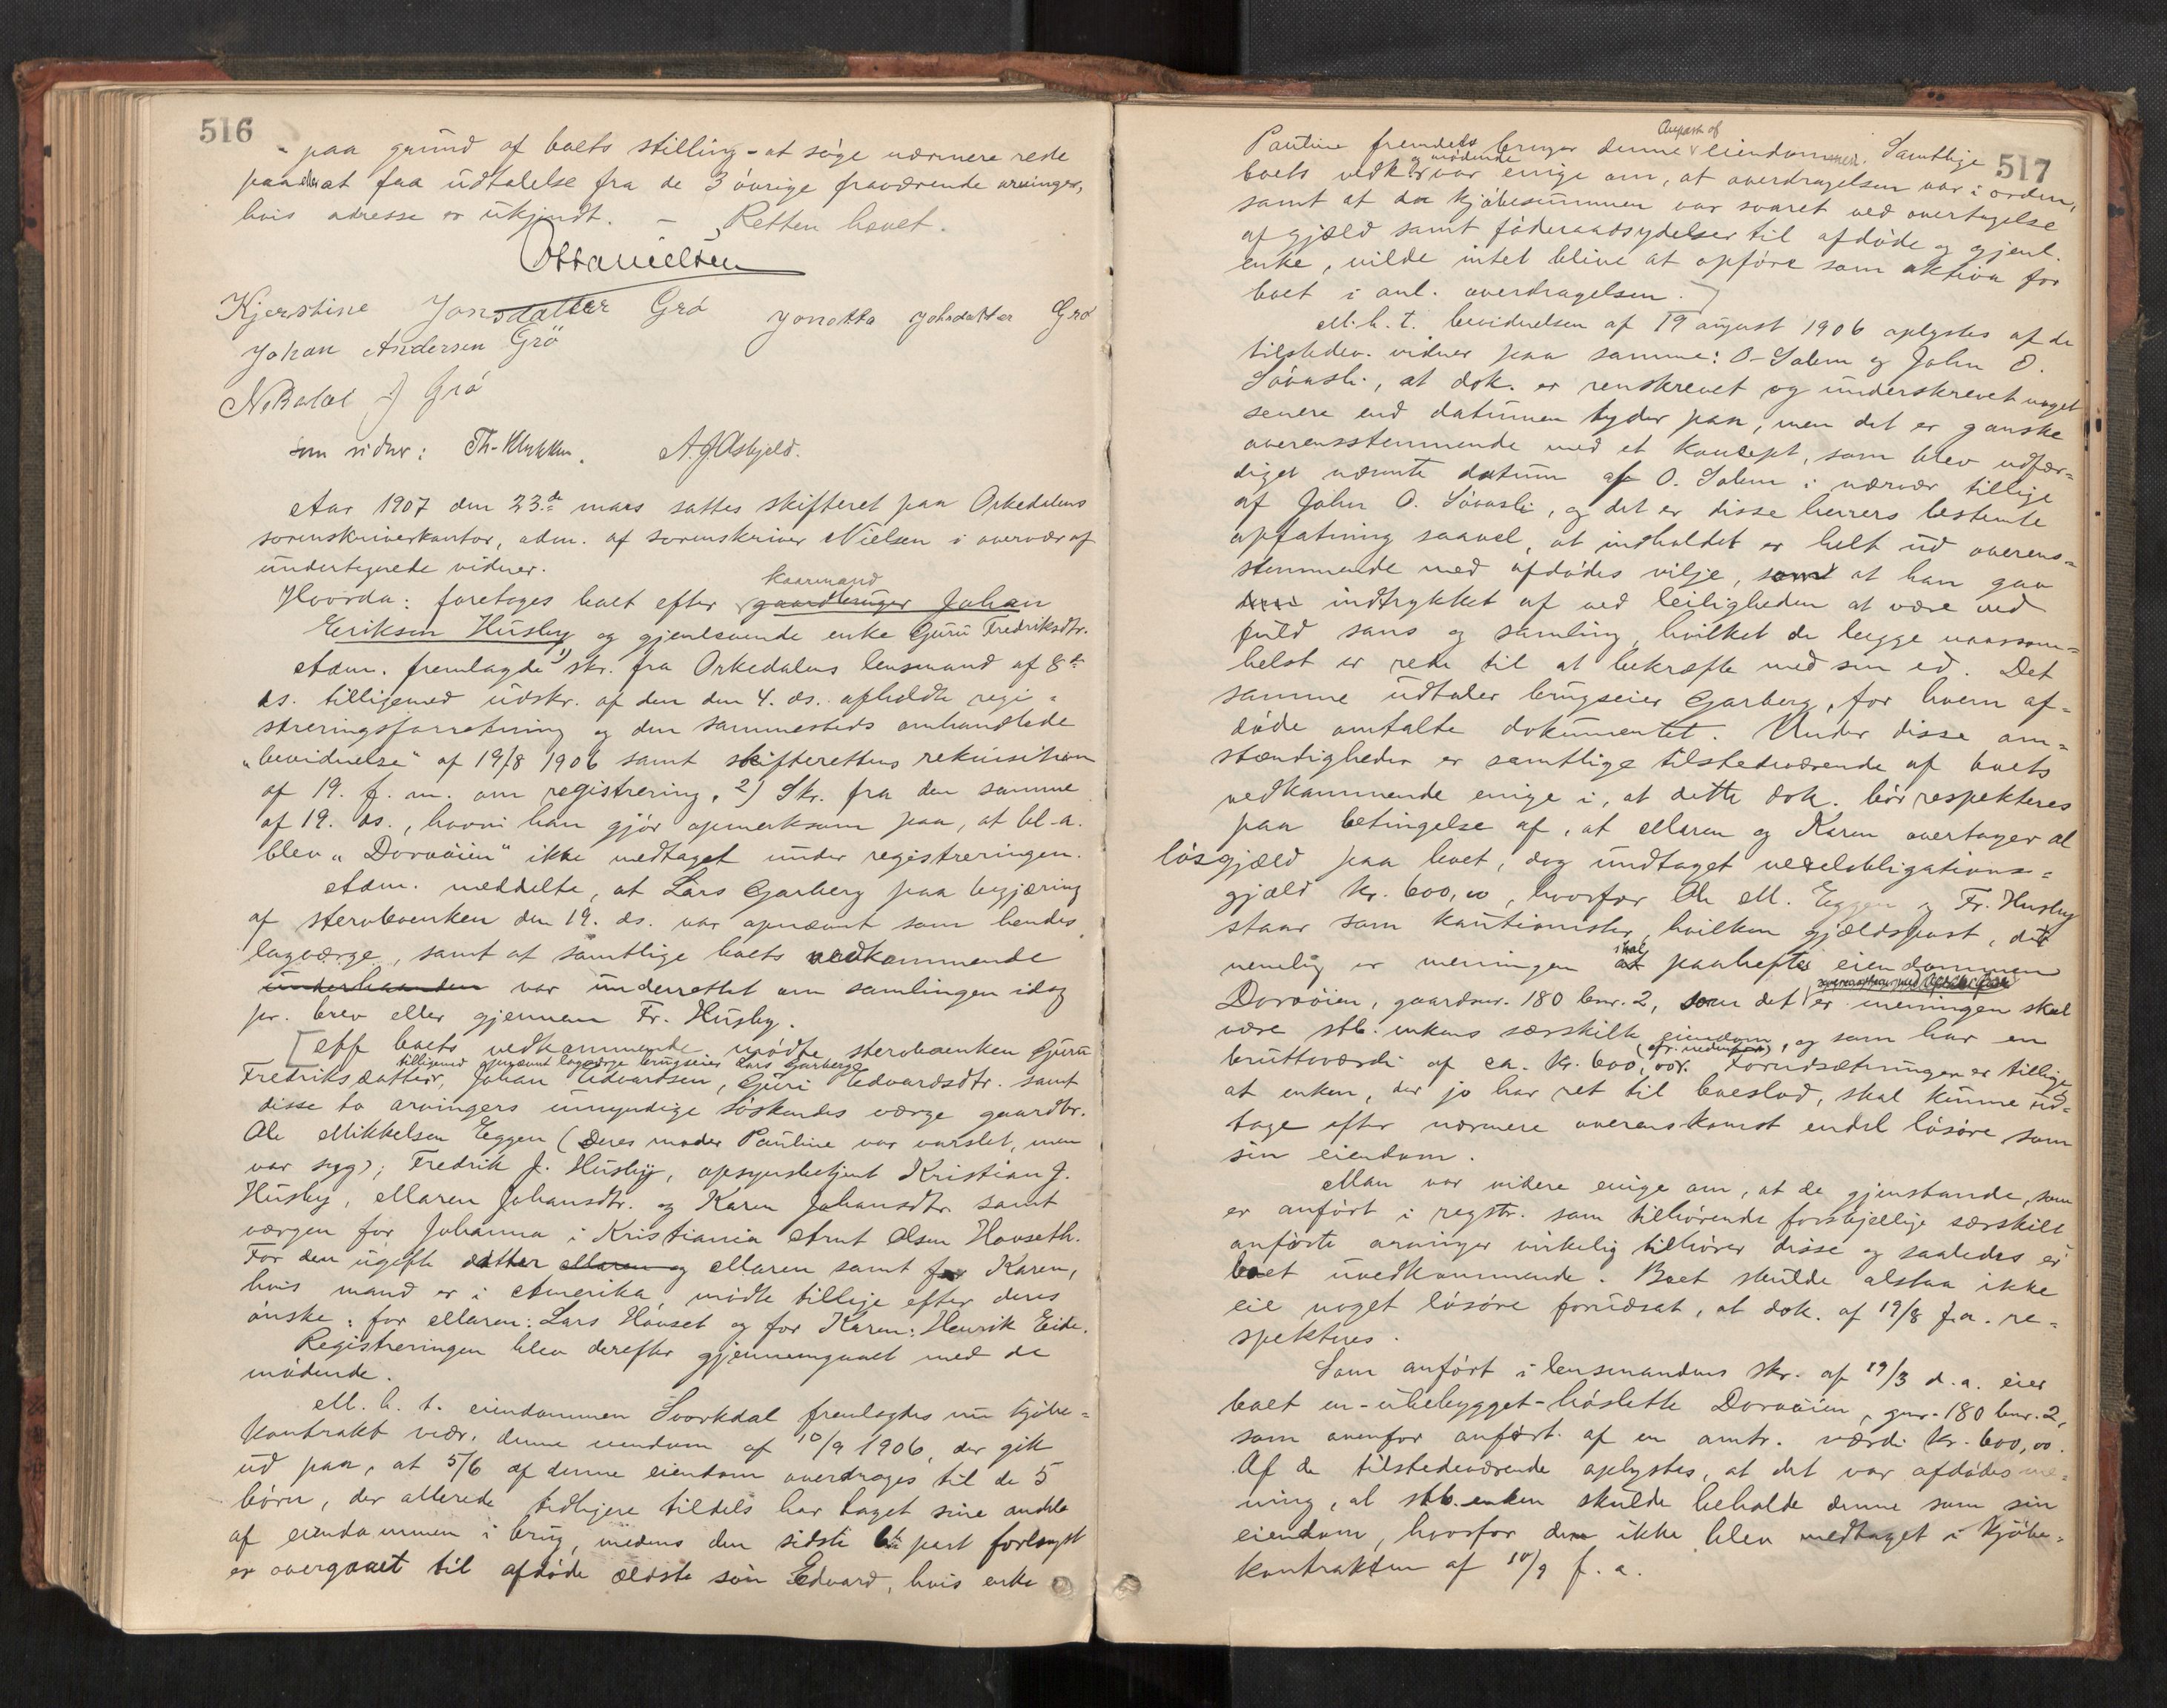 516
- paa grund af boets stilling - at søge nærmere rede
paa eller at faa udtalelse fra de 3 øvrige fraværende arvinger,
hvis adresse er ukjendt. — Retten hævet.
Otto Nielsen
Kjerstine Jonsdatter Grø Jonetta Johsdatter Grø
Johan Andersen Grø
Nikolai J Grø
som vidner: Th. Klykken. A. J. Asbjeld.
Aar 1907 den 23de mars sattes skifteret paa Orkedalens
sorenskriverkontor, adm. af sorenskriver Nielsen i overvær af
undertegnede vidner.
kaarmand
Hvorda: foretoges boet efter gaardbruger Johan
Eriksen Husby og gjenlevende enke Guru Fredriksdtr.
Adm. fremlagde 1) skr. fra Orkedalens lensmand af 8de
ds. tilligemed udskr. af den den 4. ds. afholdte regi-
streringsforretning og den sammesteds omhandlede
"bevidnelse" af 19/8 1906 samt skifterettens rekvisition
af 19. f. m. om registrering, 2) Skr. fra den samme
af 19. ds., hvori han gjør opmerksom paa, at bl. a.
blev "Dorvøien" ikke medtaget under registreringen.
Adm. meddelte, at Lars Garberg paa begjæring
af stervboenken den 19. ds. var opnævnt som hendes
lagværge, samt at samtlige boets vedkommende
underhaanden var underrettet om samlingen idag
pr. brev eller gjennem Fr. Husby.
[Aff boets vedkommende mødte stervboenken Guru
tilligemed opnævnt lagværge brugseier Lars Garberg
Fredriksdatter, Johan Edvardsen, Guri Edvardsdtr. samt
disse to arvingers umyndige søskendes værge gaardbr.
Ole Mikkelsen Eggen (deres moder Pauline var varslet, men
var syg); Fredrik J. Husby, opsynsbetjent Kristian J.
Husby, Maren Johansdtr. og Karen Johansdtr. samt
værgen for Johanna i Kristiania Arnt Olsen Hovseth.
For den ugifte datter Maren og Maren samt for Karen,
hvis mand er i Amerika, mødte tillige efter deres
ønske: for Maren: Lars Hovset og for Karen: Henrik Eide.
Registreringen blev derefter gjennemgaaet med de
mødende.
M. h. t. eiendommen Svorkdal fremlagdes nu kjøbe-
kontrakt vedr. denne eiendom af 10/9 1906, der gik
ud paa, at 5/6 af denne eiendom overdroges til de 5
børn, der allerede tidligere tildels har taget sine andele
af eiendommen i brug, medens den sidste 6te part forlængst
er overgaaet til afdøde ældste søn Edvard, hvis enke
517
Anpart af
Pauline fremdeles bruger denne eiendommen. Samtlige
og mødende
boets vedk. var enige om, at overdragelsen var i orden,
samt at da kjøbesummen var svaret ved overtagelse
af gjæld samt føderaadsydelser til afdøde og gjenl.
enke, vilde intet blive at opføre som aktiva for
boet i anl. overdragelsen.]
M. h. t. bevidnelsen af 19 august 1906 oplystes af de
tilstedev. vidner paa samme: O. Solem og John O.
Søvasli, at dok. er renskrevet og underskrevet noget
senere end datumen tyder paa, men det er ganske
overensstemmende med et koncept, som blev udfær-
diget nævnte datum af O. Solem i nærvær tillige
af John O. Søvasli, og det er disse herrers bestemte
opfatning saavel, at indholdet er helt ud overens-
stemmende med afdødes vilje, som at han gav
indtrykket af ved leiligheden at være ved
fuld sans og samling, hvilket de begge naarsom-
helst er rede til at bekræfte med sin ed. Det
samme udtaler brugseier Garberg, for hvem af-
døde omtalte dokumentet. Under disse om-
stændigheder er samtlige tilstedeværende af boets
vedkommende enige i, at dette dok. bør respekteres
paa betingelse af, at Maren og Karen overtager al
løsgjæld paa boet, dog undtaget vexelobligations-
gjæld kr. 600,00, hvorfor Ole M. Eggen og Fr. Husby
staar som kautionister, hvilken gjældspost, det
skal
nemlig er meningen at paaheftes eiendommen
Dorvøien, gaardnr. 180 bnr. 2, som det er meningen skal
være stb. enkens særskilte eiendom, og som har en
(cfr. nedenfor)
bruttoværdi af ca. kr. 600,00. Forudsætningen er tillige
at enken, der jo har ret til boeslod, skal kunne ud-
tage efter nærmere overenskomst endel løsøre som
sin eiendom.
Man var videre enige om, at de gjenstande, som
er anført i regstr. som tilhørende forskjellige særskilt
anførte arvinger virkelig tilhører disse og saaledes er
boet uvedkommende. Boet skulde altsaa ikke
eie noget løsøre forudsat, at dok. af 19/8 f.a. re-
spekteres.
Som anført i lensmandens skr. af 19/3 d. a. eier
boet en - ubebygget - høslette Dorvøien, gnr. 180 bnr. 2,
som ovenfor anført af en omtr. værdi kr. 600,00.
Af de tilstedeværende oplystes, at det var afdødes me-
ning, at stb. enken skulde beholde denne som sin
eiendom, hvorfor den ikke blev medtaget i kjøbe-
kontrakten af 10/9 f. a.